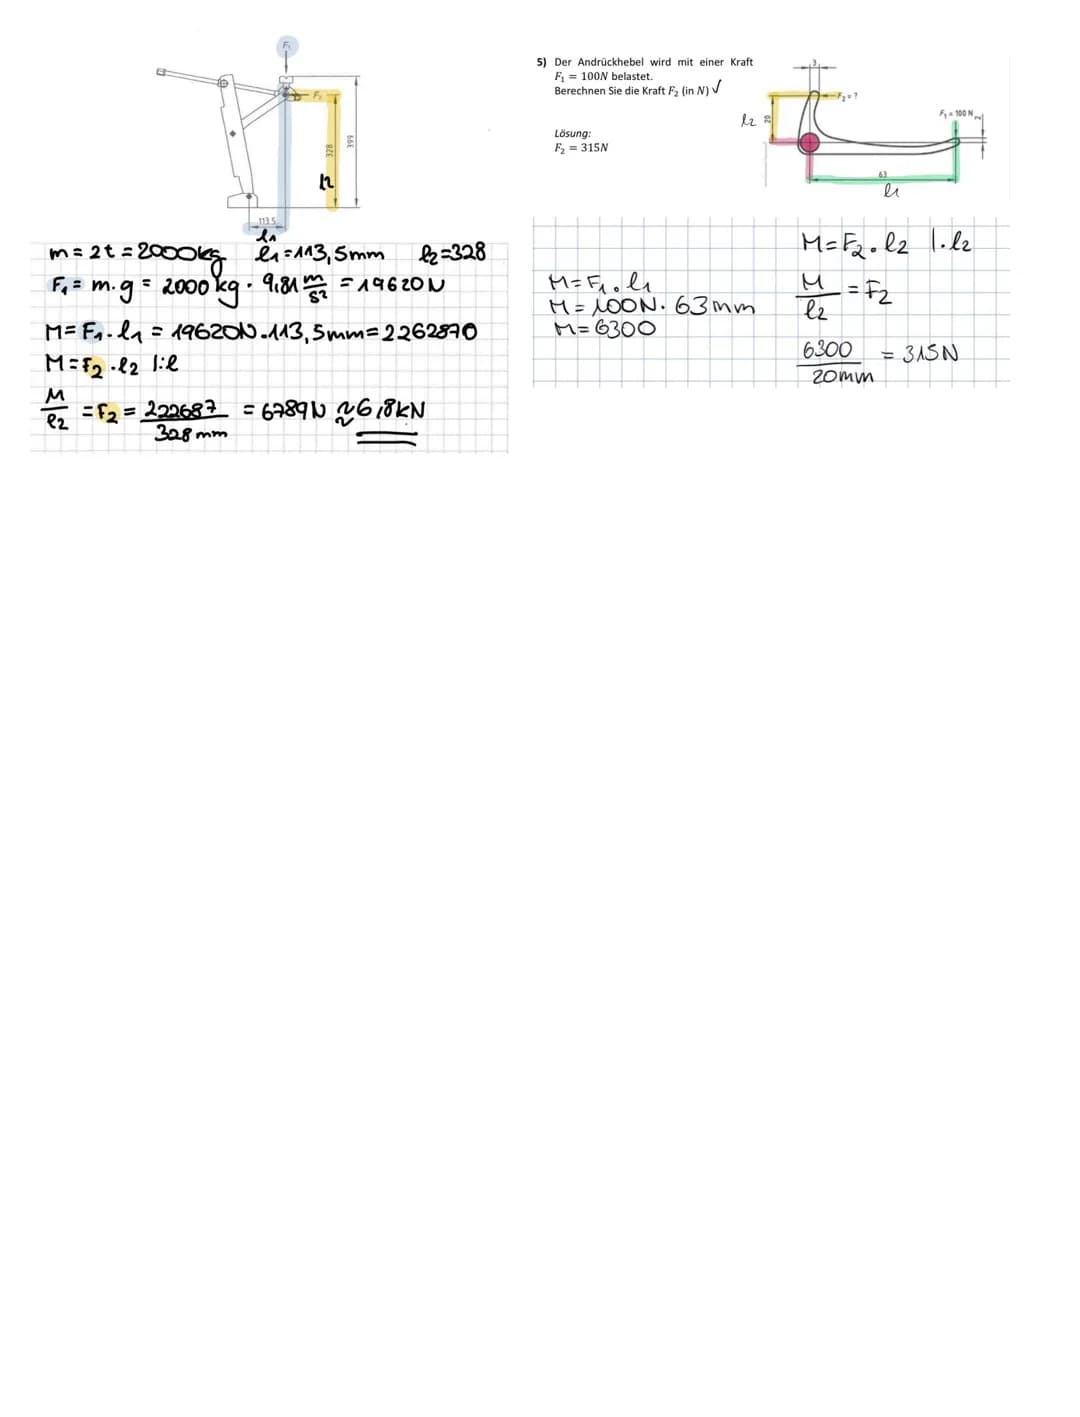 F₁
F₂
328
399
l2
113.5
l1
m = 2t = 2000kg l1 = 113,5mm l2=328
F₁ = m·g = 2000 kg · 9,81 m/s² = 19620N
M= F₁·l1 = 19620N·113,5mm=2262870
M=F2·l2 |:l
M/l2 = F2 = 222687/328mm = 6789N ≈ 6,8kN
5) Der Andrückhebel wird mit einer Kraft
F₁ = 100N belastet.
Berechnen Sie die Kraft F₂ (in N) √
Lösung:
F₂ = 315N
3
F₂ = ?
l2 20
F₁ = 100 N
2
63
l1
M=F1·l1
M= 100N·63mm
M= 6300
M=F2·l2 |·l2
M/l2 = F2
6300/20mm = 315N